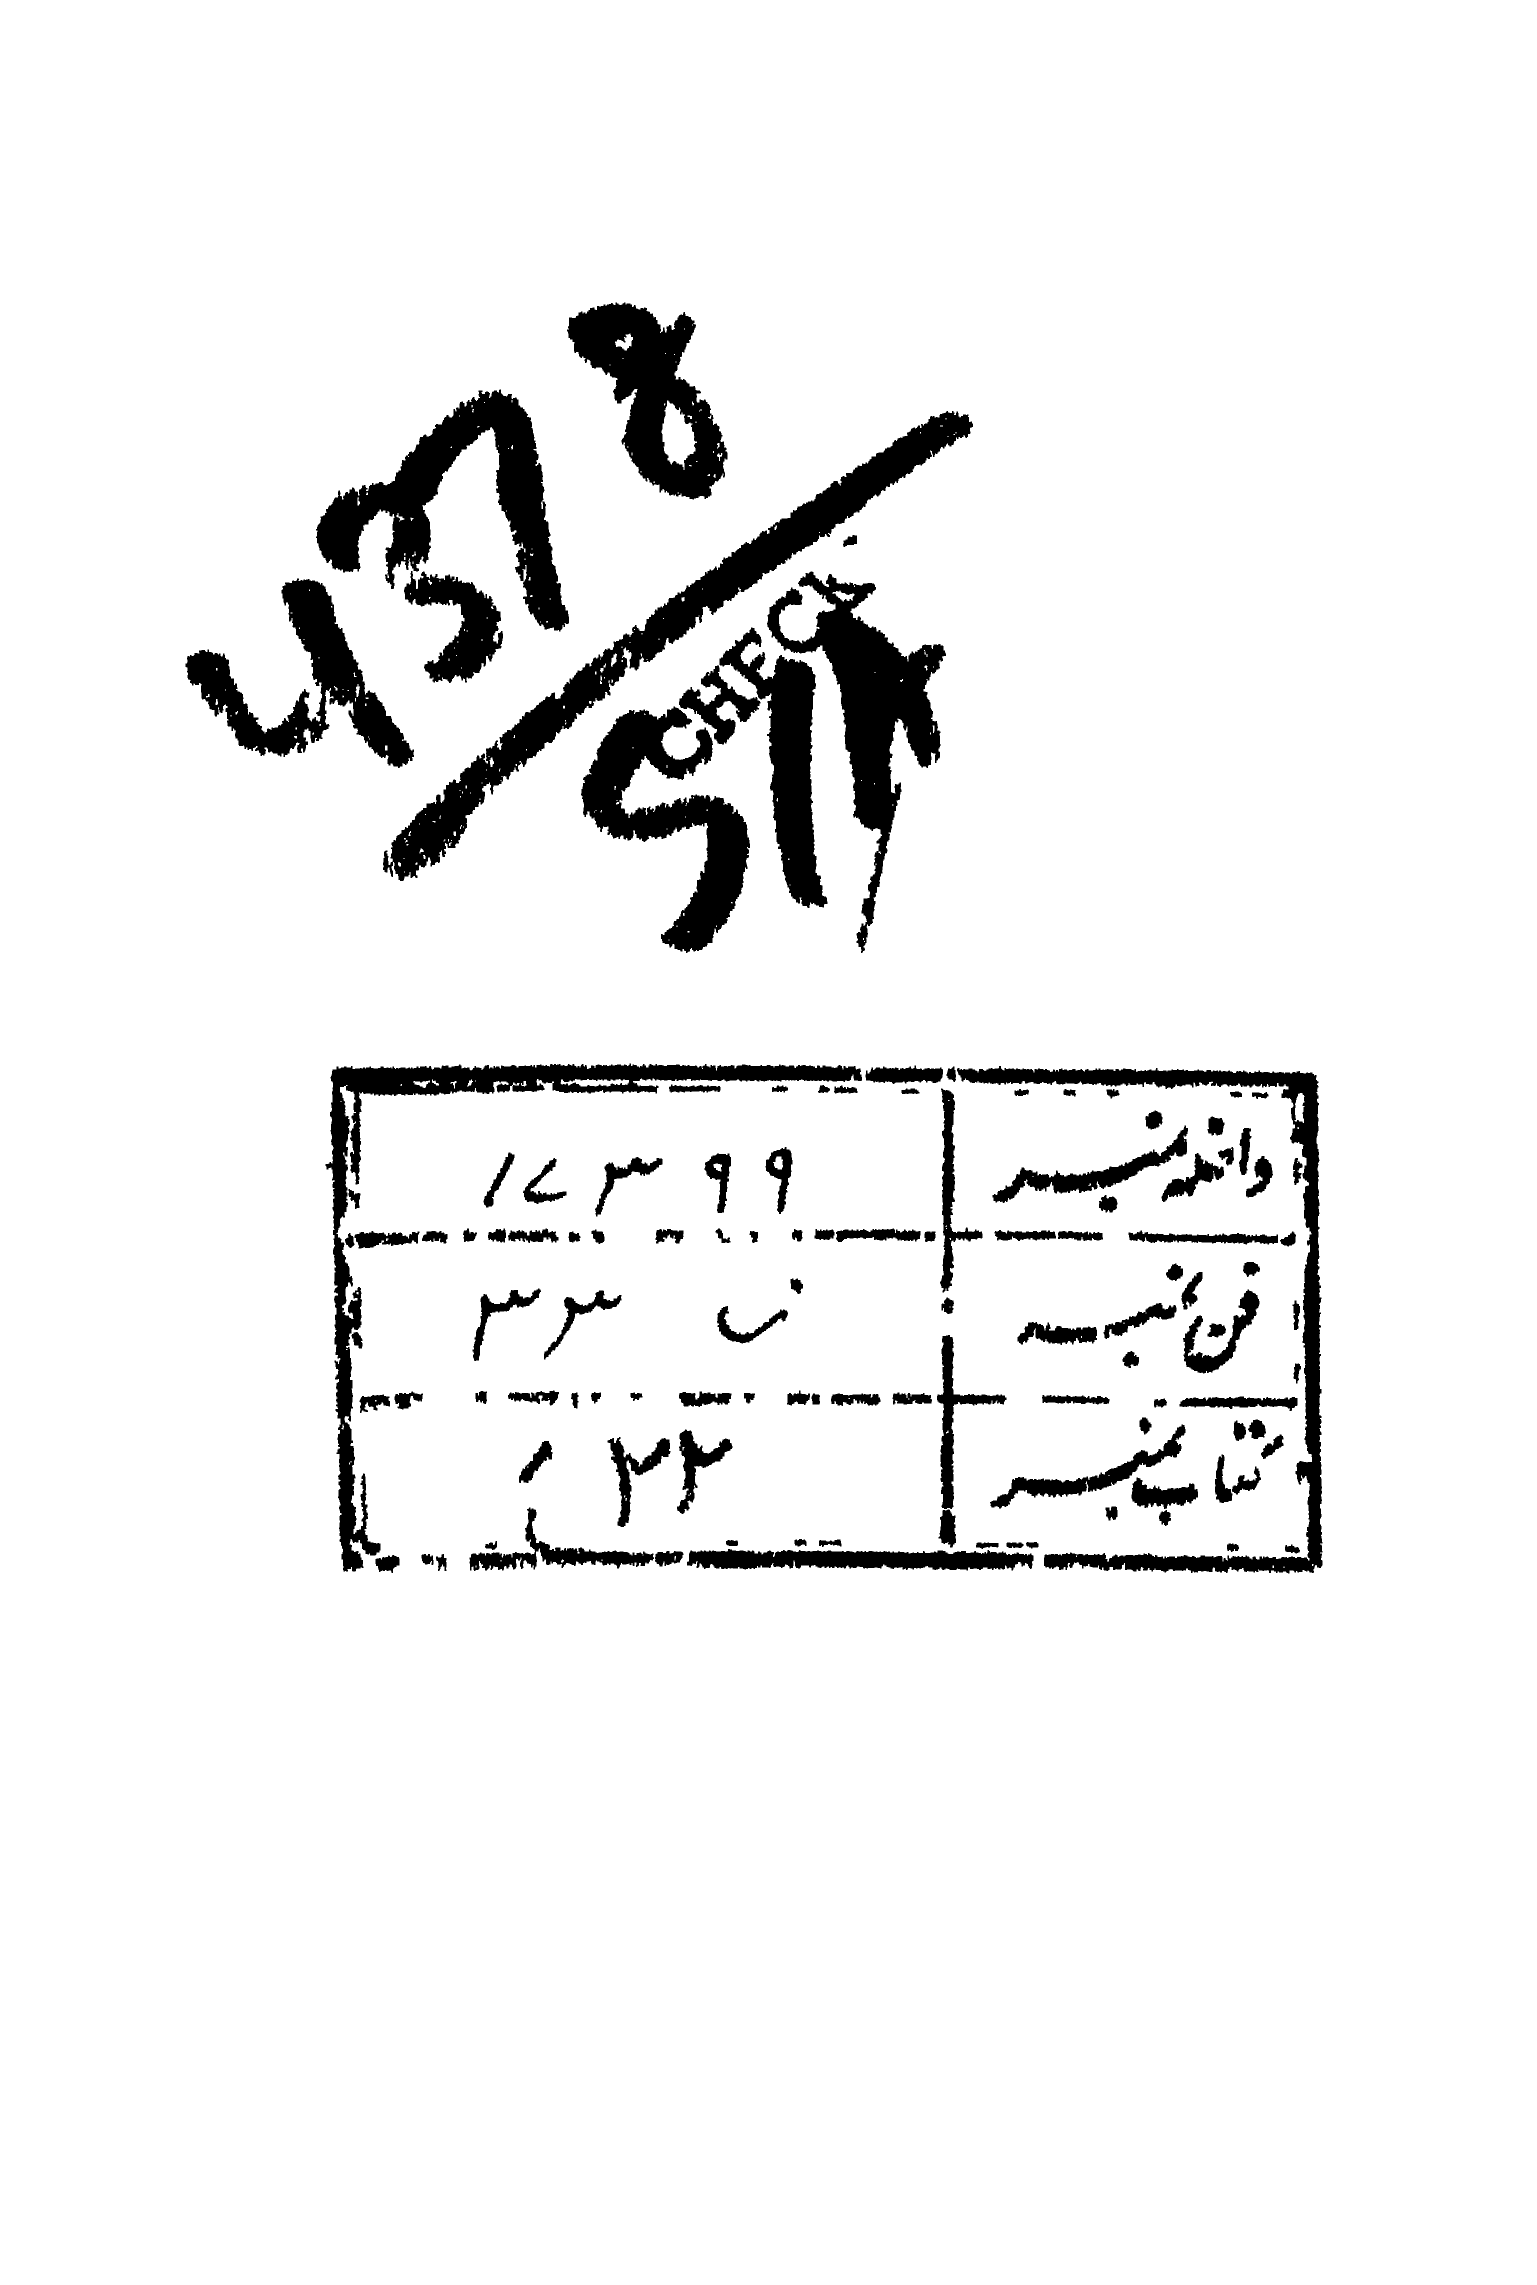 4378
CHECK
داخلہ نمبر ۱۷۳۹۹
فن نمبر ۳۳
کتاب نمبر ۳۳